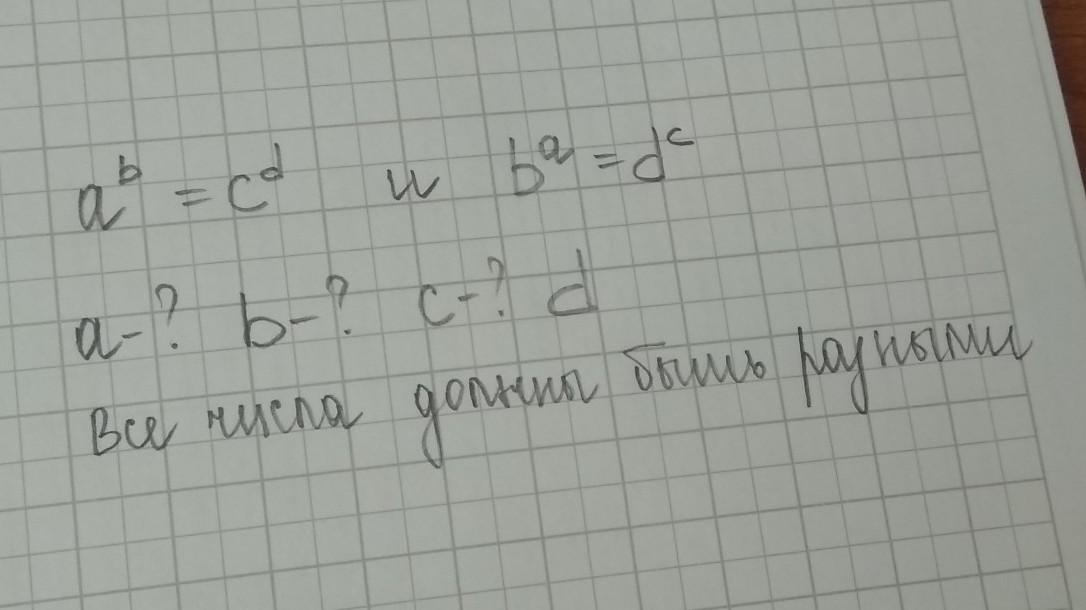 a^b = c^d и b^a = d^c
a-? b-? c-? d
Все числа должны быть разными